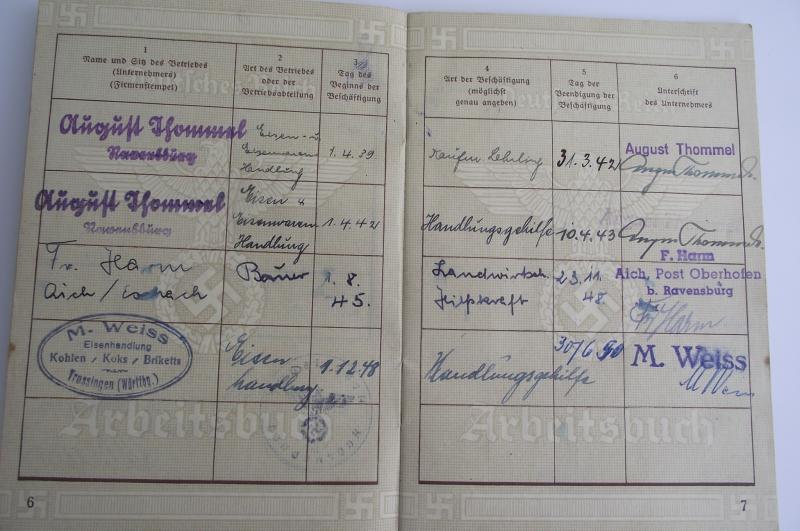 1
Name und Sitz des Betriebes
(Unternehmers)
(Firmenstempel)
2
Art des Betriebes
oder der
Betriebsabteilung
3
Tag des
Beginns der
Beschäftigung
August Thommel
Ravensburg
Eisen- u.
Eisenwaren
Handlung
1.4.39
August Thommel
Ravensburg
Eisen u
Eisenwaren
Handlung
1.4.42
Fr. Harm
Aich / Eschach
Bauer
1.8.
45.
M. Weiss
Eisenhandlung
Kohlen / Koks / Briketts
Trossingen (Württbg.)
Eisen
handlung
1.12.48
Arbeitsbuch
6
4
Art der Beschäftigung
(möglichst
genau angeben)
5
Tag der
Beendigung der
Beschäftigung
6
Unterschrift
des Unternehmers
Kaufm Lehrling
31.3.42
August Thommel
Handlungsgehilfe
10.4.43
Landwirtsch.
Hilfskraft
23.11.
48.
F. Harm
Aich, Post Oberhofen
b. Ravensburg
Fr. Harm
Handlungsgehilfe
30/6 50
M. Weiss
Arbeitsbuch
7